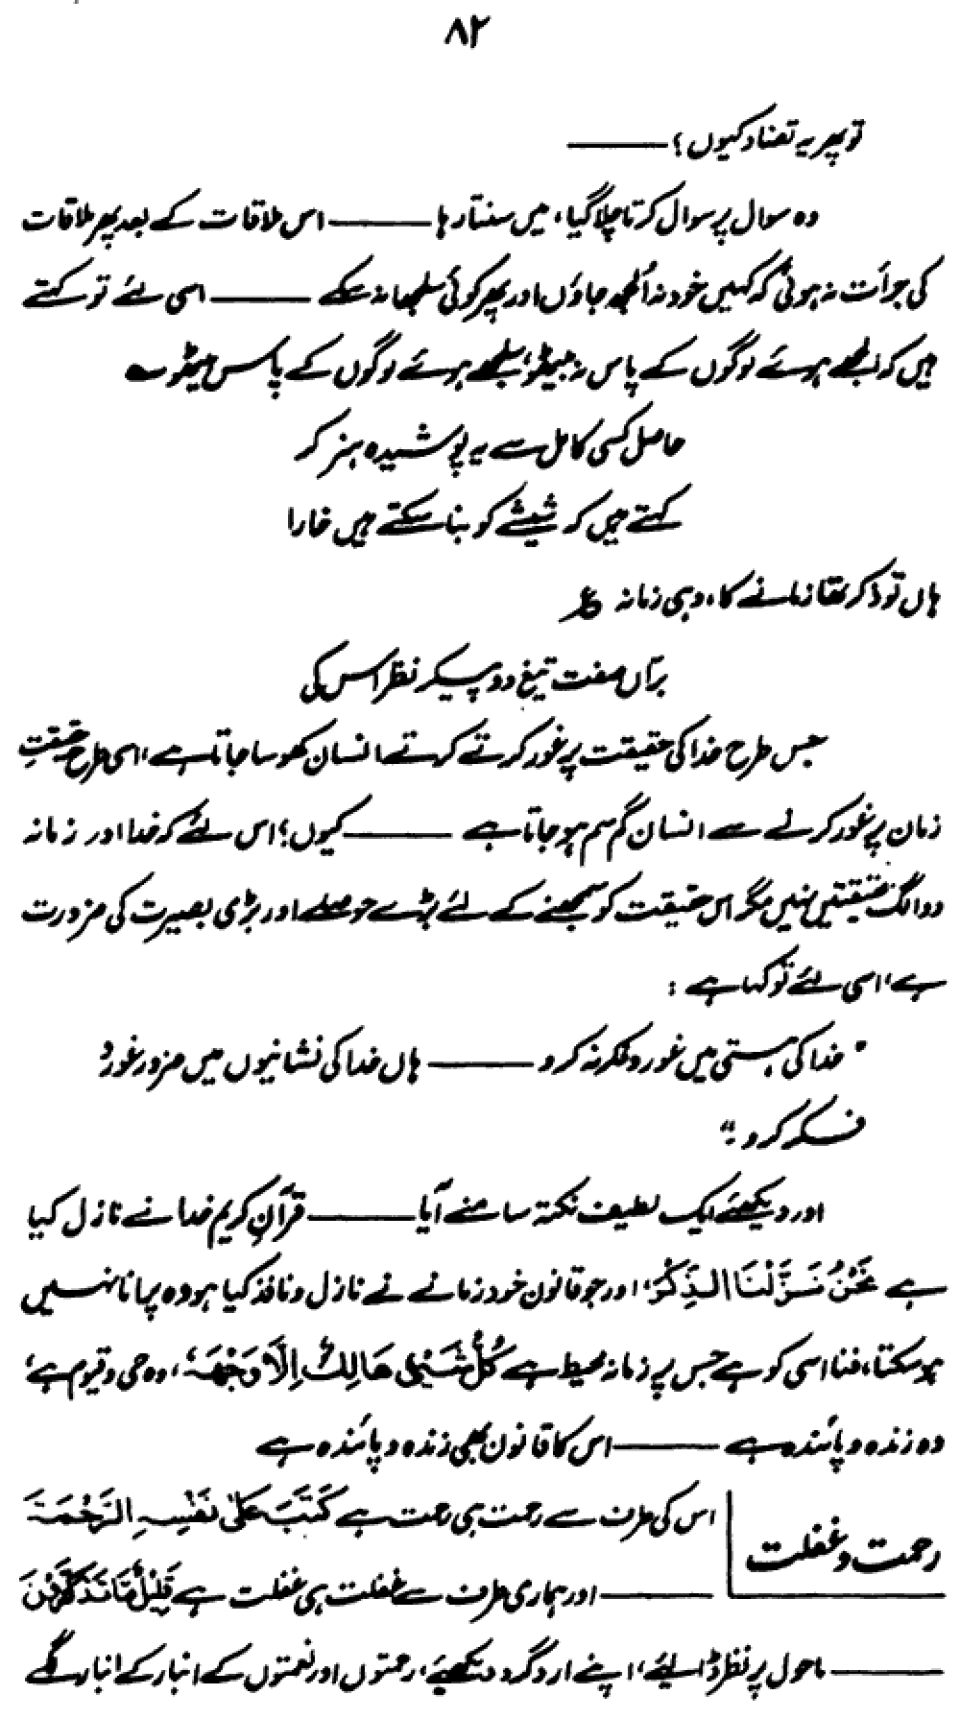 ۸۲
تو پھر یہ تضاد کیوں؟ ———
وہ سوال پر سوال کرتا چلا گیا، میں سنتا رہا ——— اس ملاقات کے بعد پھر ملاقات
کی جرأت نہ ہوئی کہ کہیں خود نہ اُلجھ جاؤں اور پھر کوئی سلجھا نہ سکے ——— اسی لئے تو کہتے
ہیں کہ الجھے ہوئے لوگوں کے پاس نہ بیٹھو، سلجھے ہوئے لوگوں کے پاس بیٹھو ؎
حاصل کسی کامل سے یہ پوشیدہ ہنر کر
کہتے ہیں کہ شیشے کو بنا سکتے ہیں خارا
ہاں تو ذکر تھا زمانے کا، وہی زمانہ ع
برّاں صفت تیغِ دو پیکر نظر اس کی
جس طرح خدا کی حقیقت پر غور کرتے کرتے انسان کھو سا جاتا ہے، اسی طرح حقیقتِ
زمان پر غور کرنے سے انسان گم سم ہو جاتا ہے ——— کیوں؟ اس لئے کہ خدا اور زمانہ
دو الگ حقیقتیں نہیں مگر اس حقیقت کو سمجھنے کے لئے بڑے حوصلے اور بڑی بصیرت کی ضرورت
ہے، اسی لئے تو کہا ہے :
" خدا کی ہستی میں غور و فکر نہ کرو ——— ہاں خدا کی نشانیوں میں ضرور غور و
فکر کرو۔"
اور دیکھئے ایک لطیف نکتہ سامنے آیا ——— قرآنِ کریم خدا نے نازل کیا
ہے نَحْنُ نَزَّلْنَا الذِّكْرَ، اور جو قانون خود زمانے نے نازل و نافذ کیا ہو وہ پرانا نہیں
ہو سکتا، فنا اسی کو ہے جس پر زمانہ محیط ہے كُلُّ شَيْءٍ هَالِكٌ اِلَّا وَجْهَهٗ، وہ حی و قیوم ہے،
وہ زندہ و پائندہ ہے ——— اس کا قانون بھی زندہ و پائندہ ہے
رحمت و غفلت
اس کی طرف سے رحمت ہی رحمت ہے كَتَبَ عَلٰى نَفْسِهِ الرَّحْمَةَ
——— اور ہماری طرف سے غفلت ہی غفلت ہے قَلِيْلًا مَّا تَذَكَّرُوْنَ
——— ماحول پر نظر ڈالیے، اپنے ارد گرد دیکھیے، رحمتوں اور نعمتوں کے انبار کے انبار لگے